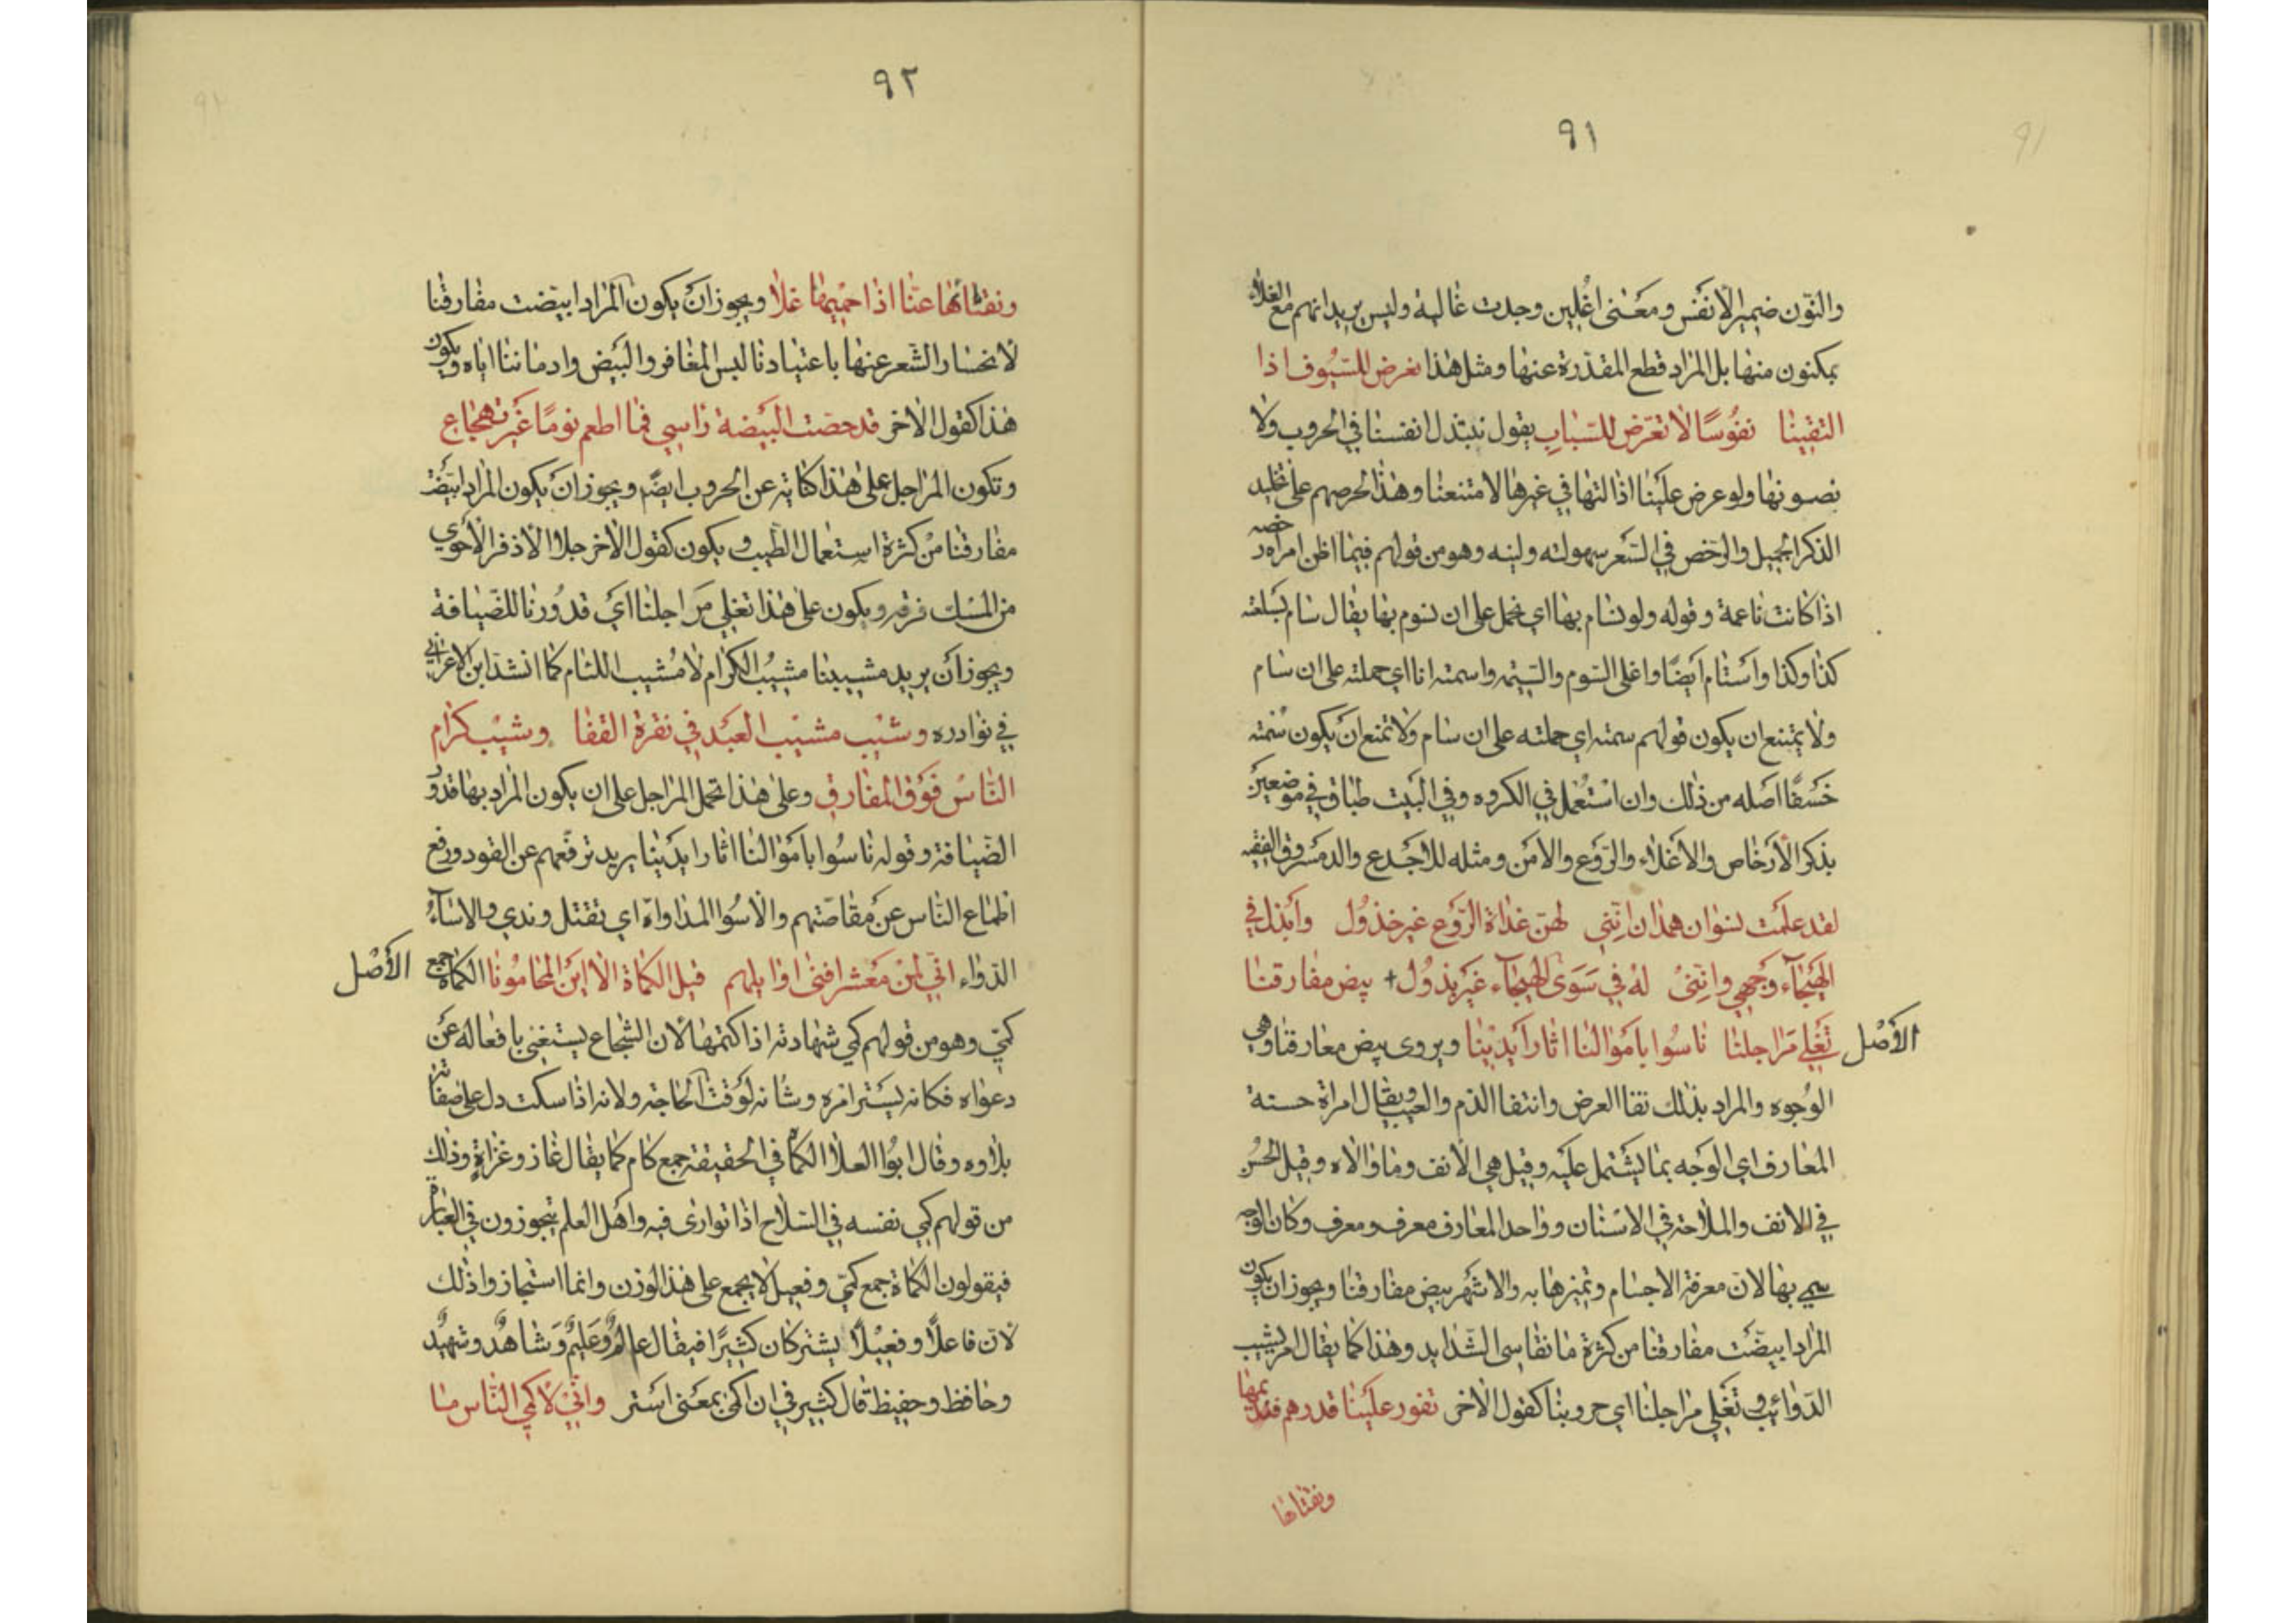 ٩١
والنّون ضمير الأنفس ومعنى اغلين وجدت غالية وليس يريد انهم مع الغلاء
يمكنون منها بل المراد قطع المقدرة عنها ومثل هذا نعرض للسّيوف اذا
التقينا نفوسًا لا تعرّض للسّباب يقول نبتذل انفسنا في الحروب ولا
نصونها ولو عرض علينا اذالتها في غيرها لامتنعنا وهذا لحرصهم على تخليد
الذكر الجميل والرّخص في الشعر سهولته ولينه وهو من قولهم فيما اظن امراه رخصه
اذا كانت ناعمة وقوله ولو نسام بها اي نحمل على ان نسوم بها يقال سام بسلعته
كذا وكذا واستام ايضًا واغلى السّوم والسّيمه واسمته انا اي حملته على ان سام
ولا يمتنع ان يكون قولهم سمته اي حملته على ان سام ولا تمنع ان يكون سُمته
خسفًا اصله من ذلك وان استُعمل في الكروه وفي البيت طباق في موضعين
بذكر الأرخاص والاغلاء والرّوع والامن ومثله للاجدع والد مسروق الفقيه
لقد علمت نسوان همدان انّني لهنّ غداة الرّوع غير خذول وابذل في
الهيجاء وجهي وانني له في سوى الهيجاء غير بذول + بيض مفارقنا
الأصل تغلي مراجلنا ناسوا باموالنا اثار ايدينا ويروى بيض معارفنا وهي
الوجوه والمراد بذلك نقا العرض وانتفا الذم والعيب ويقال امراة حسنة
المعارف اي الوجه بما يشتمل عليه وقيل هي الانف وما والاه وقيل الحسن
في الانف والملاحة في الاسنان وواحد المعارف معرف ومعرف وكان الوجه
سمي بها لانّ معرفة الاجسام وتميزها به والاشهر بيض مفارقنا ويجوز ان يكون
المراد ابيضّت مفارقنا من كثرة ما نقاسي الشّدايد وهذا كما يقال امر يشيب
الذّوائب وتغلي مراجلنا اي حروبنا كقول الاخر تفور علينا قدرهم فنديمها
ونفثاها
٩٢
ونفثاها عنّا اذا حميها غلا ويجوز ان يكون المراد ابيضت مفارقنا
لانحسار الشّعر عنها باعتيادنا لبس المغافر والبيض وادماننا اياه ويكون
هذا كقول الاخر قد حصّت البيضة راسي فما اطعم نومًا غير تهجاع
وتكون المراجل على هذا كناية عن الحروب ايضًا ويجوز ان يكون المراد ابيضّت
مفارقنا من كثرة استعمال الطّيب ويكون كقول الاخر جلا الاذفر الاحوي
من المسك فرقه ويكون على هذا تغلي مراجلنا اي قدورنا للضّيافة
ويجوز ان يريد مشيبنا مشيب الكرام لا مشيب اللئام كما انشد ابن الاعرابي
في نوادره وشيب مشيب العبد في نقرة القفا وشيب كرام
النّاس فوق المفارق وعلى هذا تحمل المراجل على ان يكون المراد بها قدور
الضّيافة وقوله ناسوا باموالنا اثار ايدينا يريد ترفّعهم عن القود ورفع
اطماع النّاس عن مقاصّتهم والاسُوا المداواة اي نقتل وندي والاسآءُ
الدّواء انّي لمن معشر افنى اوايلهم قيل الكماة الا اين المحامونا الكماة جمع الأصل
كميّ وهو من قولهم كمي شهادته اذا كتمها لان الشّجاع يستغني بافعاله عن
دعواه فكانه يستر امره وشانه لوقت الحاجة ولانه اذا سكت دل على صفاته
بلاوه وقال ابو العلا الكماة في الحقيقة جمع كام كما يقال غاز وغزاة وذلك
من قولهم كمي نفسه في السّلاح اذا توارى فيه واهل العلم يتجوزون في العبارة
فيقولون الكماة جمع كميّ وفعيل لا يجمع على هذا الوزن وانما استجازوا ذلك
لانّ فاعلًا وفعيلًا يشتركان كثيرًا فيقال عالم وعليم وشاهد وشهيد
وحافظ وحفيظ قال كثير في ان اكمي بمعنى استر وانّي لاكمي النّاس ما